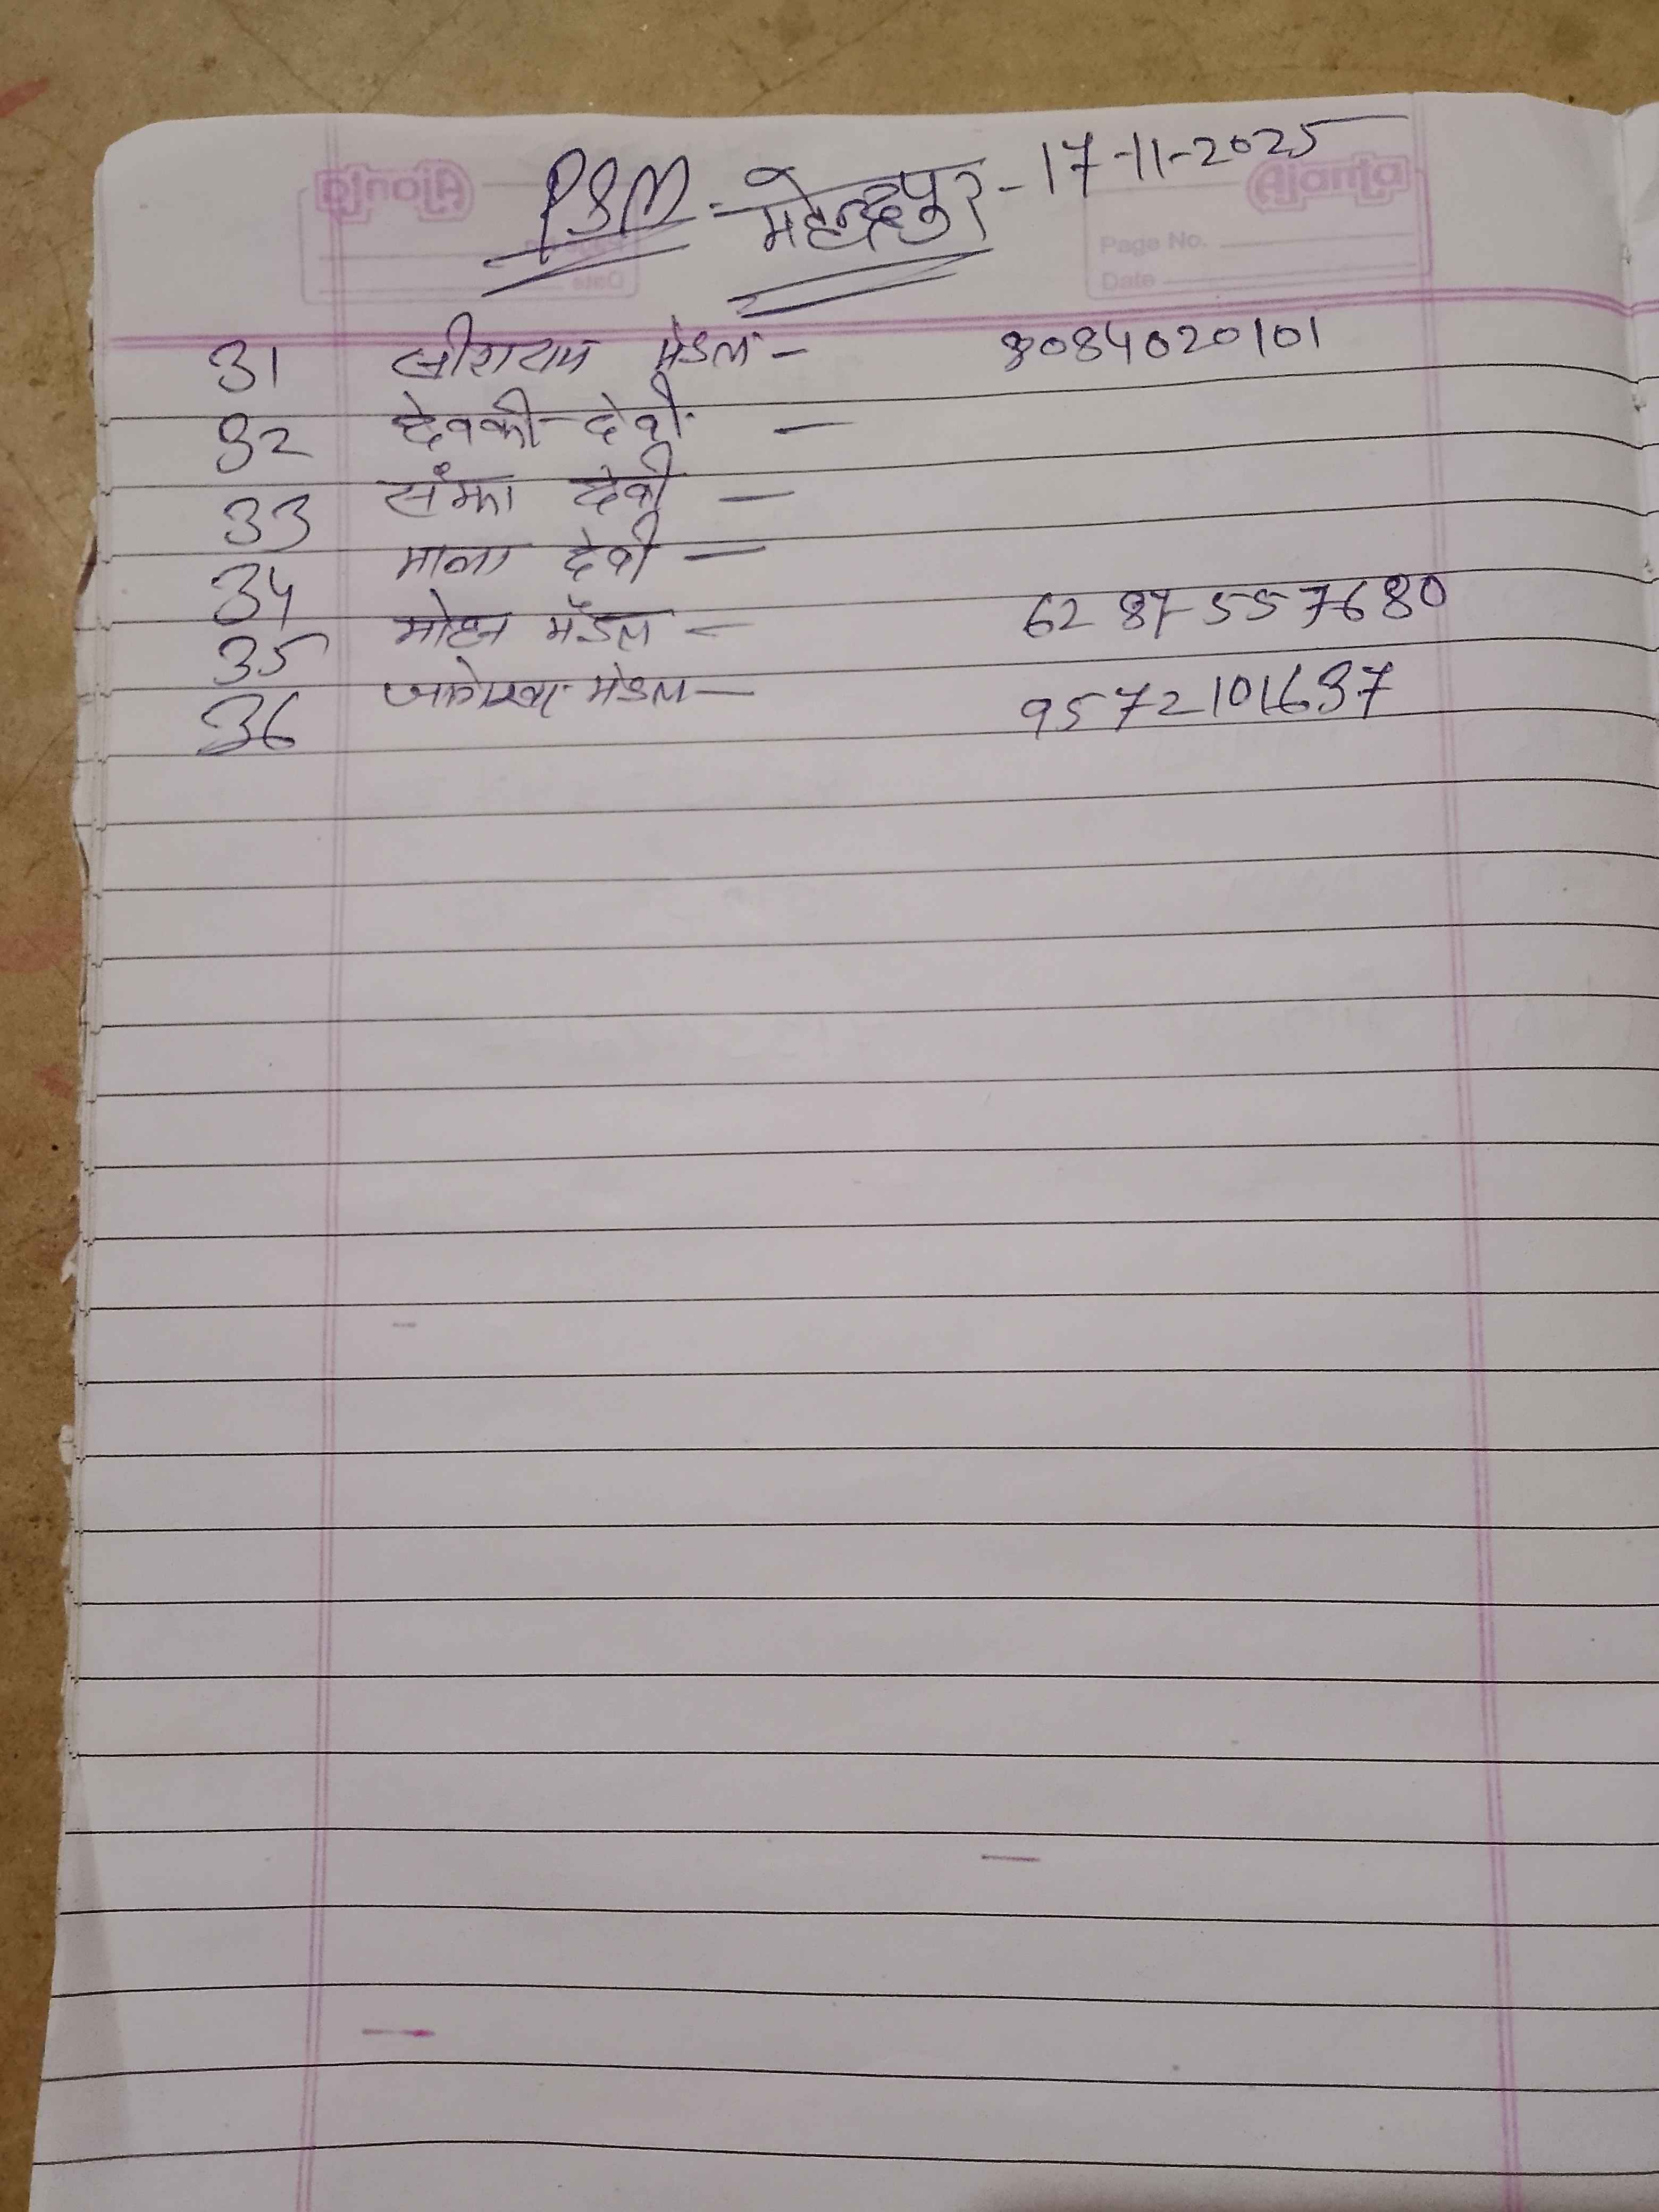 PSM - महेन्द्रपुर - 17-11-2025
Ajanta
Page No.
Date
31 श्रीराम मंडल - 8084020101
32 देवकी देवी -
33 संझा देवी -
34 माला देवी -
35 मोहन मंडल - 6287557680
36 मंडल - 9572101687